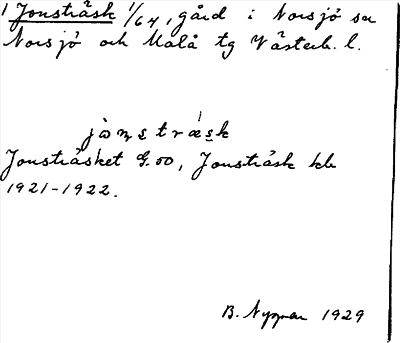 1 Jonsträsk 1/64, gård i Norsjö sn
Norsjö och Malå tg Västerb. l.
jo̊nstræsk
Jonsträsket G.oo, Jonsträsk kb
1921-1922.
B. Nygren 1929